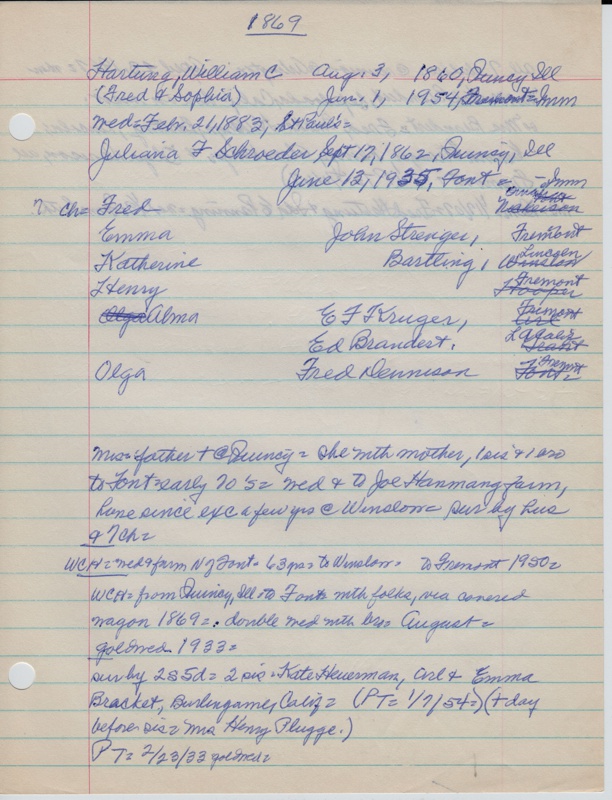 1869
Hartung, William C Aug. 3, 1860, Quincy Ill
(Fred & Sophia) Jan. 1, 1954, Fremont = Imm
Wed = Febr. 21, 1883, St Paul's =
Juliana F Schroeder Sept 17, 1862, Quincy, Ill
June 12, 1935, Font = - Imm
7 ch = Fred Nickerson
Emma John Strenger, Fremont
Katherine Bartling, Lincoln Winslow
Henry Fremont Hooper
Olga Alma E F Kruger, Fremont
Ed Brandert.
Olga Fred Dennison Fremont Font =
Mrs = father + @ Quincy = she with mother, 1 sis & 1 bro
to Font = early 70's = wed & to Joe Hanmang farm,
home since exc a few yrs @ Winslow = sur by hus
& 7 ch =
WCH = wed & farm N of Font = 63 yrs = to Winslow = to Fremont 1950 =
WCH = from Quincy, Ill = to Font with folks, via covered
wagon 1869 = . double wed with bro = August =
gold wed. 1933 =
sur by 2s 5d = 2 sis = Kate Heuerman, Arl & Emma
Bracket, Burlingame, Calif = (PT = 1/7/54 =) (+ day
before sis = Mrs Henry Plugge.)
PT = 2/23/33 gold wed =